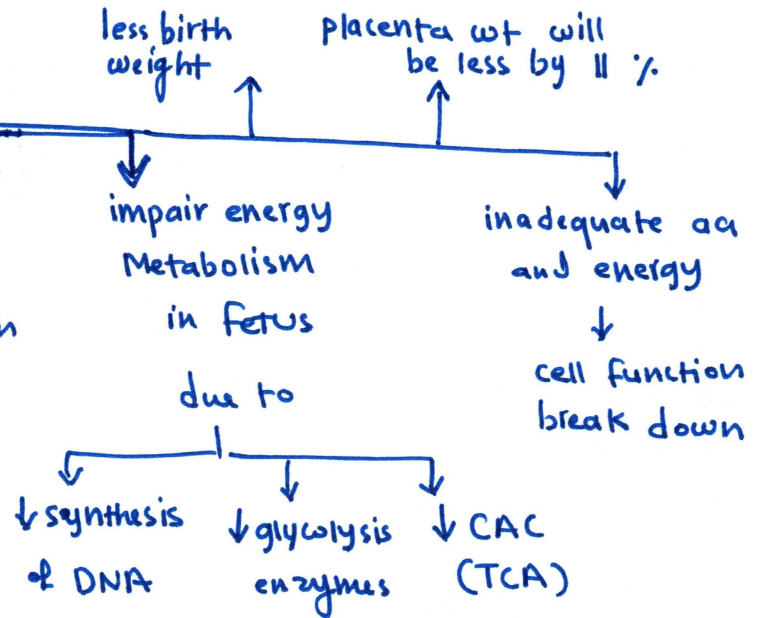 less birth
weight
placenta wt will
be less by 11 %
impair energy
Metabolism
in Fetus
inadequate aa
and energy
↓
cell function
break down
due to
↓ synthesis
of DNA
↓ glycolysis
enzymes
↓ CAC
(TCA)